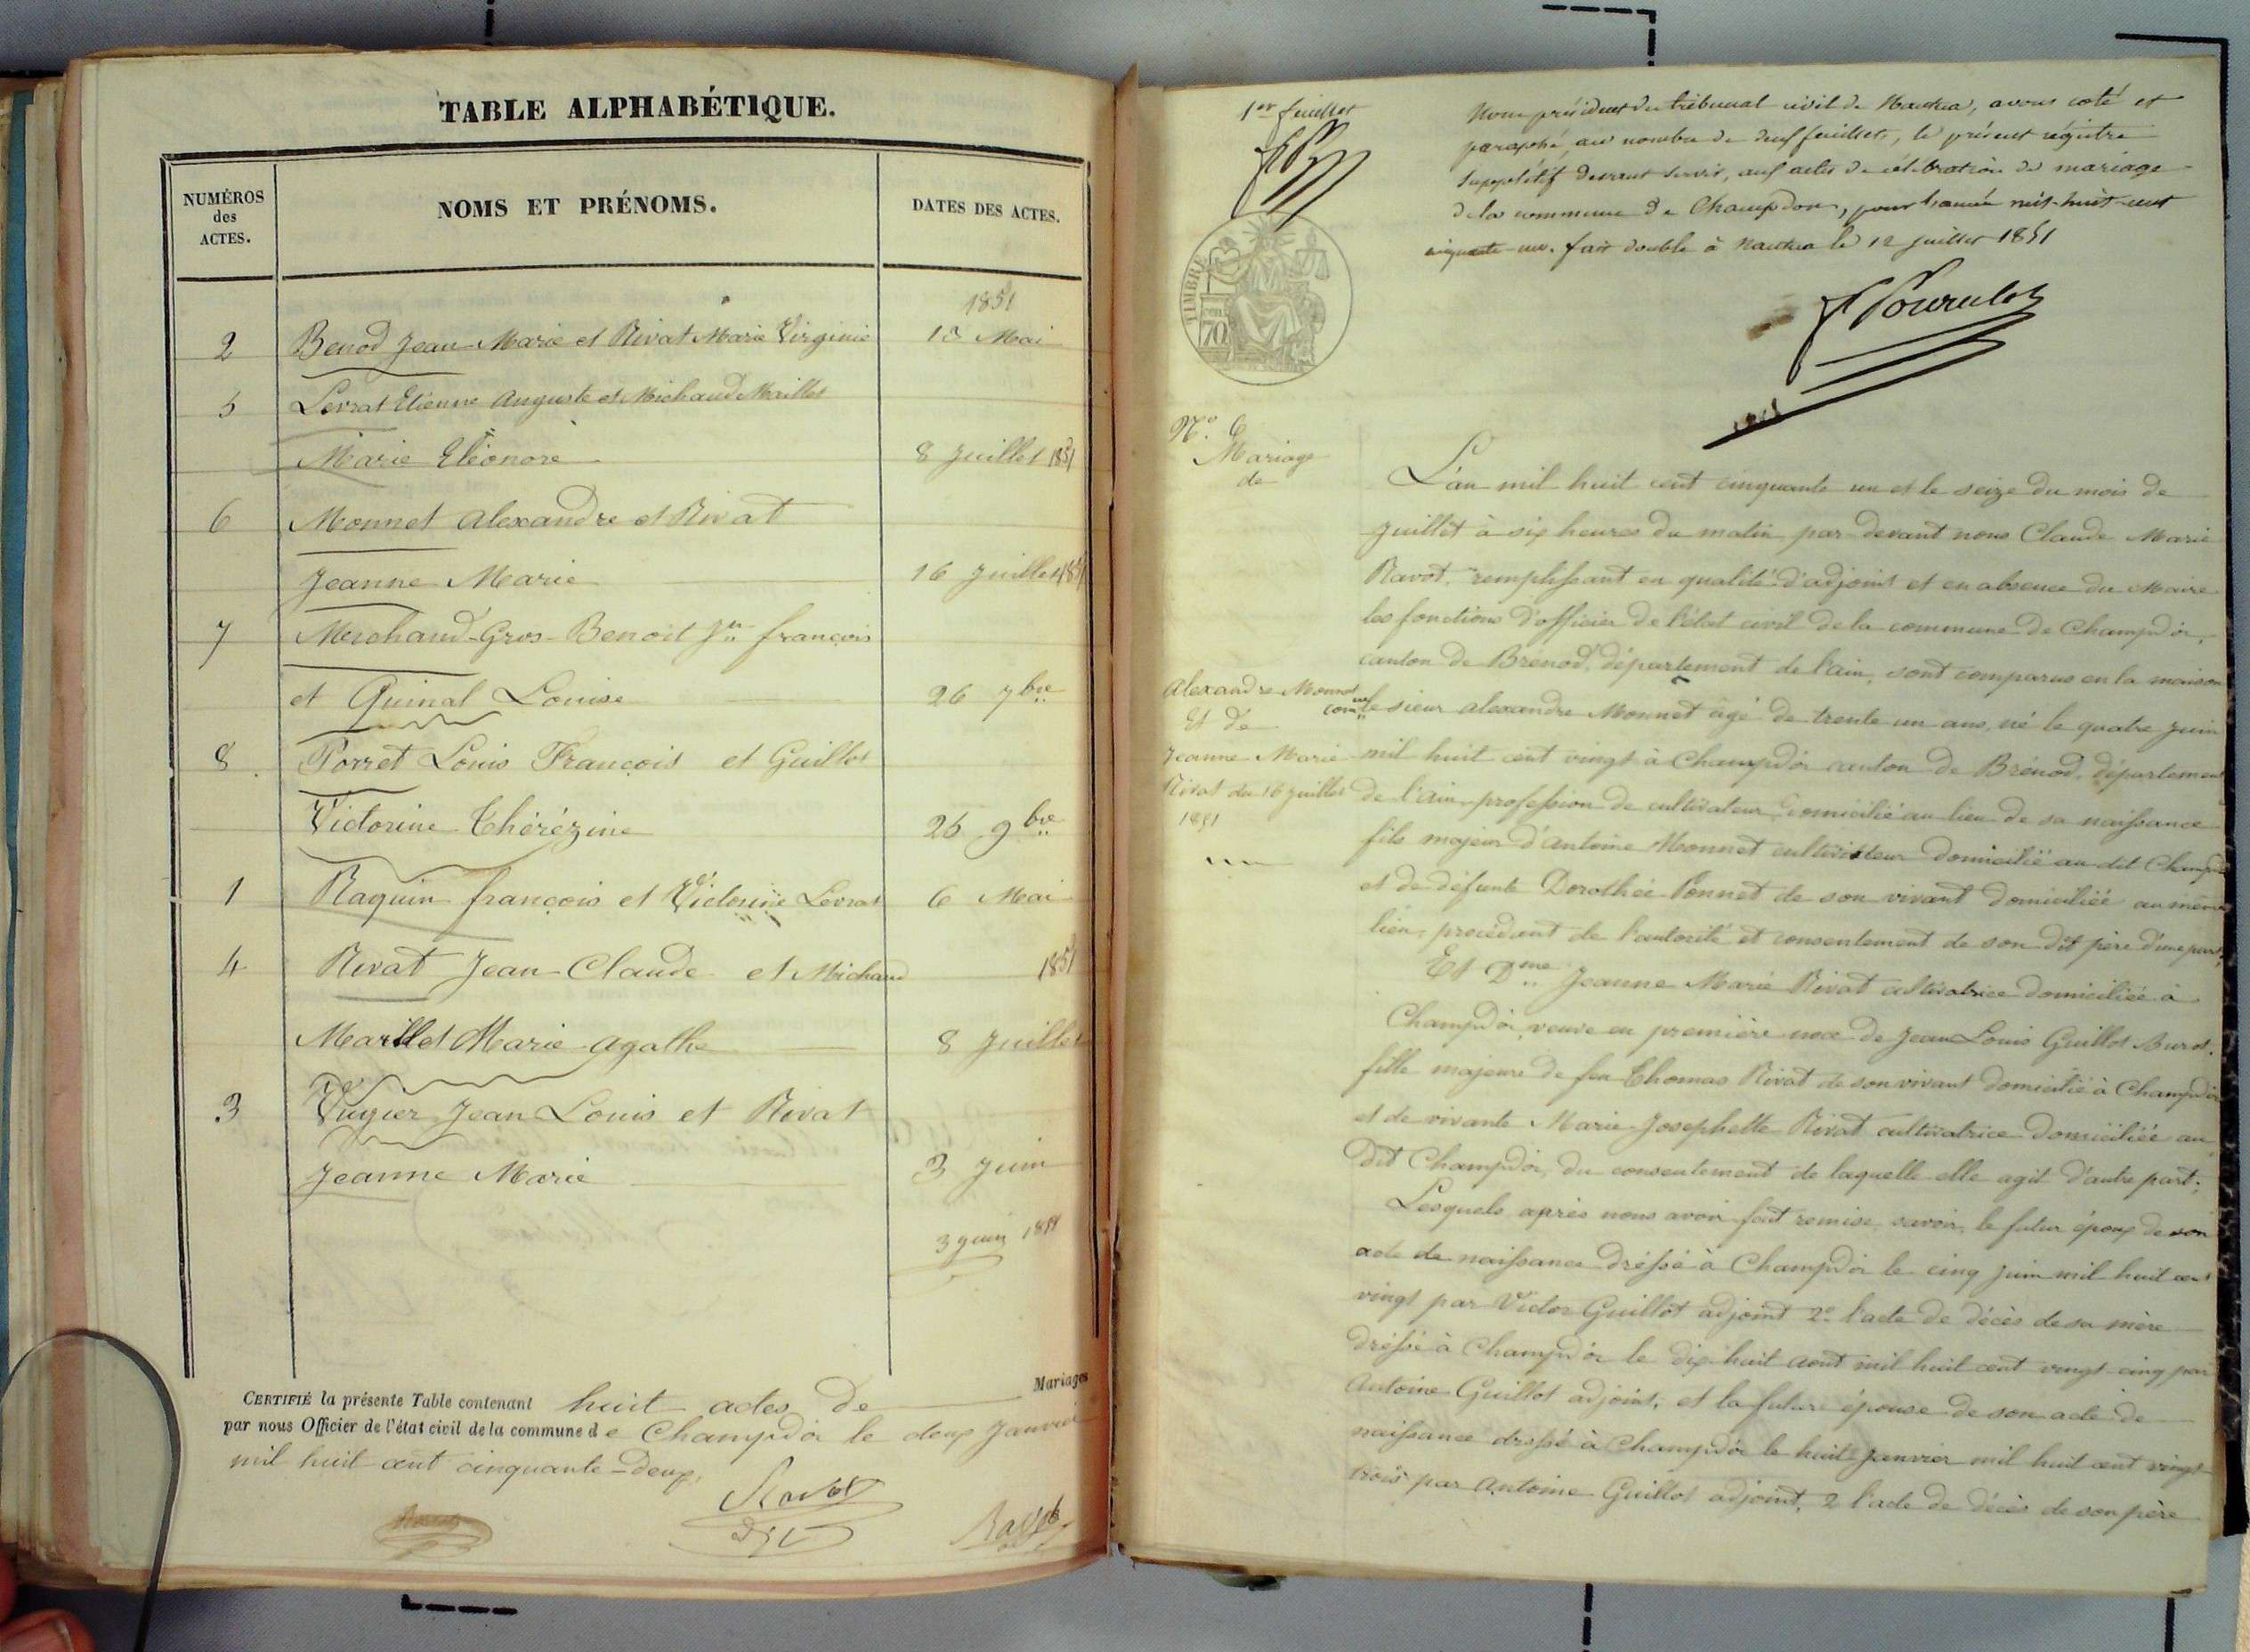 TABLE ALPHABÉTIQUE.
NUMÉROS des ACTES.
NOMS ET PRÉNOMS.
DATES DES ACTES.
1851
2 Benod Jean Marie et Rivat Marie Virginie 13 Mai
5 Levrat Etienne Auguste et Michaud Maillet
Marie Eléonore 8 Juillet 1851
6 Monnet Alexandre et Rivat
Jeanne Marie 16 Juillet 1851
7 Michaud-Gros-Benoit Jn françois
et Quinat Louise 26 7bre
8 Porret Louis François et Guillot
Victorine Thérézine 25 9bre
1 Raquin françois et Victorine Levrat 6 Mai
4 Rivat Jean-Claude et Michaud 1851
Maillet Marie Agathe 8 Juillet
3 Jean Louis et Rivat
Jeanne Marie 3 Juin
3 juin 1851
CERTIFIÉ la présente Table contenant huit actes de Mariages
par nous Officier de l'état civil de la commune de Champdor le deux Janvier
mil huit cent cinquante-deux,
Ravot
1er feuillet
Nous président du tribunal civil de Nantua, avons coté et
paraphé, au nombre de deux feuillets, le présent régistre
supplétif devant servir, aux actes de célébration de mariage
de la commune de Champdor, pour l'année mil-huit-cent
cinquante-un. fait double à Nantua le 12 juillet 1851
TIMBRE
70
No. 6
Mariage
de
Alexandre Monnet
Et de
Jeanne Marie
Rivat du 16 Juillet
1851
L'an mil huit cent cinquante un et le seize du mois de
Juillet à six heures du matin par-devant nous Claude Marie
Ravot, remplissant en qualité d'adjoint et en absence du Maire
les fonctions d'officier de l'état civil de la commune de Champdor,
canton de Brénod, département de l'ain, sont comparus en la maison
comne le sieur Alexandre Monnet âgé de trente un ans, né le quatre Juin
mil huit cent vingt à Champdor canton de Brénod, département
de l'Ain profession de cultivateur domicilié au lieu de sa naissance
fils majeur d'Antoine Monnet cultivateur domicilié au dit Champdor
et de défunte Dorothée Ponnet de son vivant domiciliée au même
lieu, procédant de l'autorité et consentement de son dit père d'une part,
Et Dme Jeanne Marie Rivat cultivatrice domiciliée à
Champdor, veuve en première noce de Jean Louis Guillot Buret,
fille majeure de feu Thomas Rivat de son vivant domicilié à Champdor
et de vivante Marie Josephette Rivat cultivatrice domiciliée au
dit Champdor, du consentement de laquelle elle agit d'autre part;
Lesquels après nous avoir fait remise, savoir, le futur époux de son
acte de naissance dréssé à Champdor le cinq juin mil huit cent
vingt par Victor Guillot adjoint 2° l'acte de décès de sa mère
dréssé à Champdor le dix-huit aout mil huit cent vingt-cinq par
Antoine Guillot adjoint, et la future épouse de son acte de
naissance dressé à Champdor le huit Janvier mil huit cent vingt
trois par Antoine Guillot adjoint, 2 l'acte de décès de son père